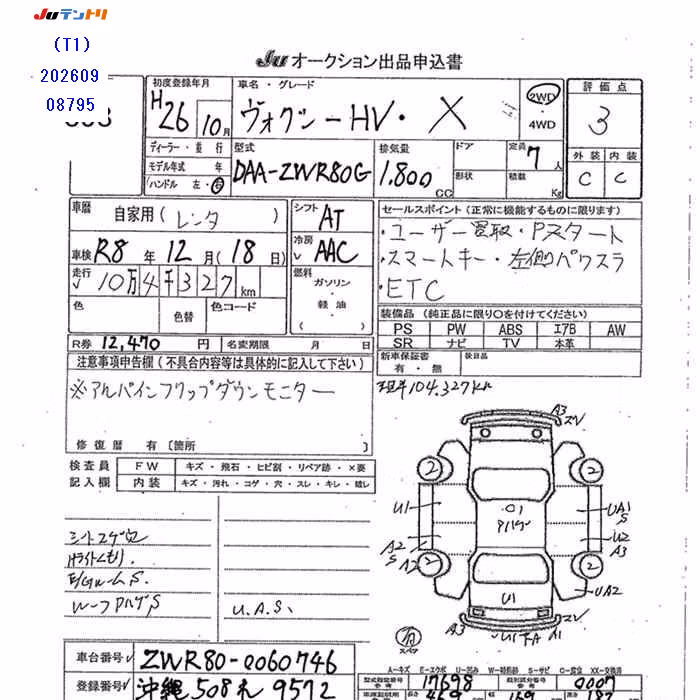 JUテントリ
(T1)
202609
08795
JU オークション出品申込書
初度登録年月
車名・グレード
評価点
H26
10月
ヴォクシーHV・X
2WD
・
4WD
3
ディーラー・並行
モデル年式 年
ハンドル 左・右
型式
DAA-ZWR80G
排気量
1,800
CC
ドア
形状
定員
7人
積載
Kg
外装
内装
C
C
車歴
自家用(レンタ )
シフト
AT
セールスポイント(正常に機能するものに限ります)
・ユーザー買取・Pスタート
・スマートキー・左側パワスラ
・ETC
車検 R8年12月(18日)
冷房
AAC
走行
10万4千327km
燃料
ガソリン
・
軽油
( )
色
色替
色コード
装備品(純正品に限り○を付けてください)
PS PW ABS エアB AW
SR ナビ TV 本革
R券 12,470円
名変期限 月 日
新車保証書
有・無
後日品
注意事項申告欄(不具合内容等は具体的に記入して下さい)
※アルパインフリップダウンモニター
現車104,327km
修復歴 有〔箇所 〕
検査員
記入欄
FW
キズ・飛石・ヒビ割・リペア跡・×要
内装
キズ・汚れ・コゲ・穴・スレ・キレ・破レ
シートコゲ穴
Hライトくもり.
E/Gルーム S.
ルーフPハゲS
U.A.S.
A3
2
2
U1
UA1
S
U2
A3
A2
S
A2
S
2
2
UA2
U1
A3
A1
スペア
車台番号
ZWR80-0060746
登録番号
沖縄 508 れ 9572
A-キズ E-エクボ U-凹み W-補修跡 S-サビ C-腐蝕 XX-交換済
型式指定番号
17698
類別区分番号
0007